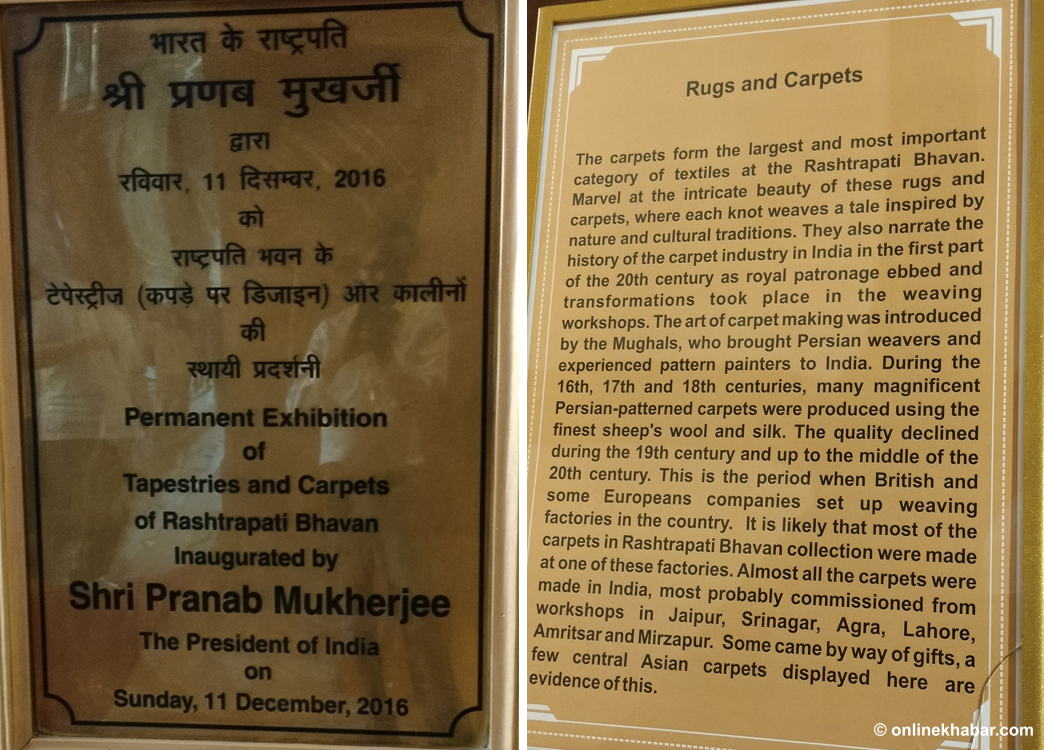 भारत के राष्ट्रपति
श्री प्रणब मुखर्जी
द्वारा
रविवार, 11 दिसम्वर, 2016
को
राष्ट्रपति भवन के
टेपेस्ट्रीज (कपड़े पर डिजाइन) और कालीनों
की
स्थायी प्रदर्शनी
Permanent Exhibition
of
Tapestries and Carpets
of Rashtrapati Bhavan
Inaugurated by
Shri Pranab Mukherjee
The President of India
on
Sunday, 11 December, 2016
Rugs and Carpets
The carpets form the largest and most important
category of textiles at the Rashtrapati Bhavan.
Marvel at the intricate beauty of these rugs and
carpets, where each knot weaves a tale inspired by
nature and cultural traditions. They also narrate the
history of the carpet industry in India in the first part
of the 20th century as royal patronage ebbed and
transformations took place in the weaving
workshops. The art of carpet making was introduced
by the Mughals, who brought Persian weavers and
experienced pattern painters to India. During the
16th, 17th and 18th centuries, many magnificent
Persian-patterned carpets were produced using the
finest sheep's wool and silk. The quality declined
during the 19th century and up to the middle of the
20th century. This is the period when British and
some Europeans companies set up weaving
factories in the country. It is likely that most of the
carpets in Rashtrapati Bhavan collection were made
at one of these factories. Almost all the carpets were
made in India, most probably commissioned from
workshops in Jaipur, Srinagar, Agra, Lahore,
Amritsar and Mirzapur. Some came by way of gifts, a
few central Asian carpets displayed here are
evidence of this.
© onlinekhabar.com